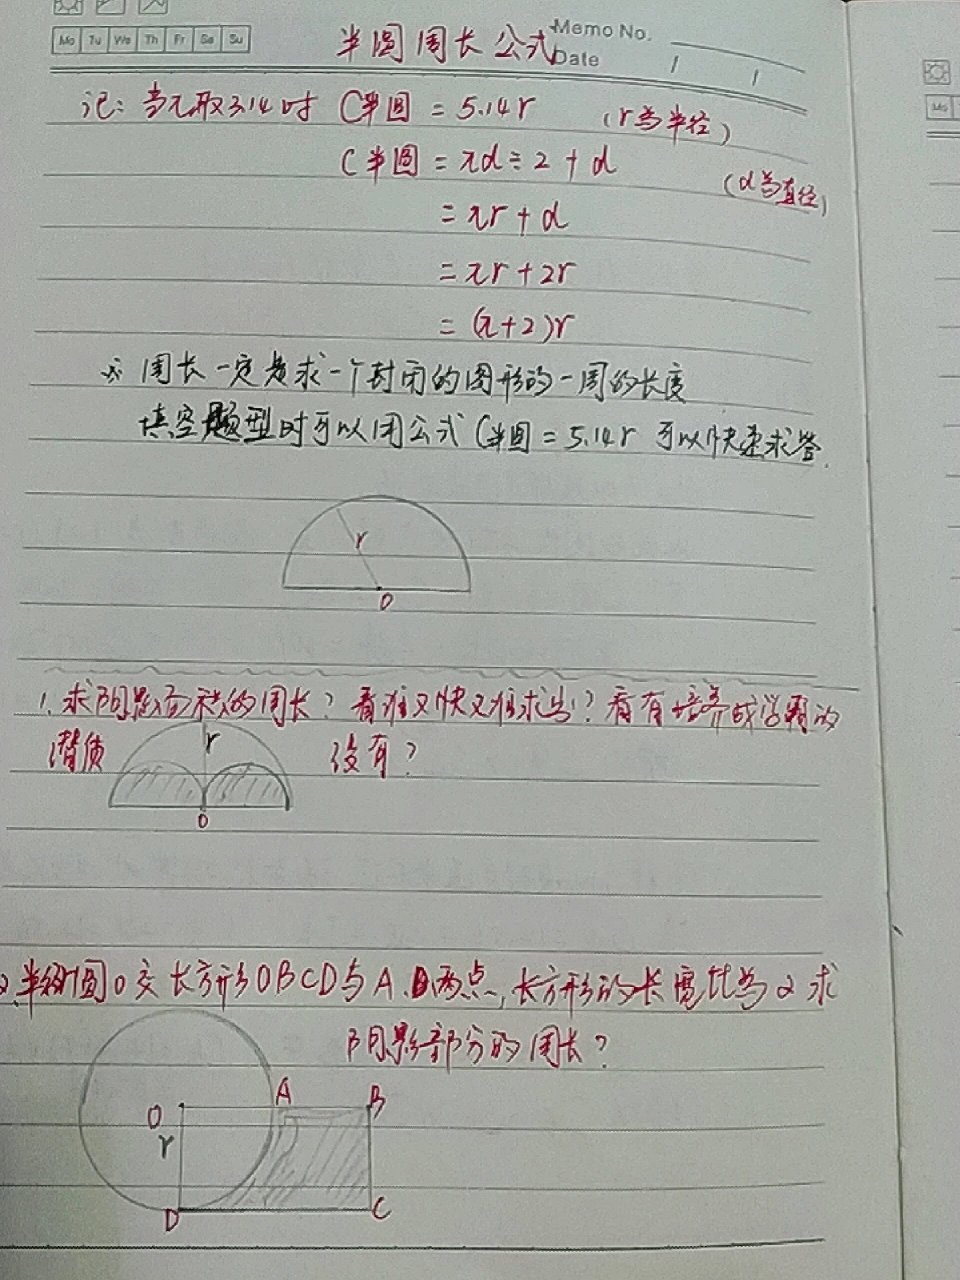 Mo Tu We Th Fr Sa Su
Memo No.
Date / /
半圆周长公式
记: 当π取3.14时 C半圆 = 5.14r (r为半径)
C半圆 = πd÷2 + d (d为直径)
= πr + d
= πr + 2r
= (π+2)r
周长一定是求一个封闭的图形的一周的长度
填空题型时可以用公式C半圆 = 5.14r 可以快速求答.
r
O
1. 求阴影面积的周长? 看谁又快又准求出? 看有培养成学霸的
潜质 没有?
r
O
2. 圆O交长方形OBCD与A.D两点, 长方形的长宽比为2 求
阴影部分的周长?
A
O B
r
D C
Mo